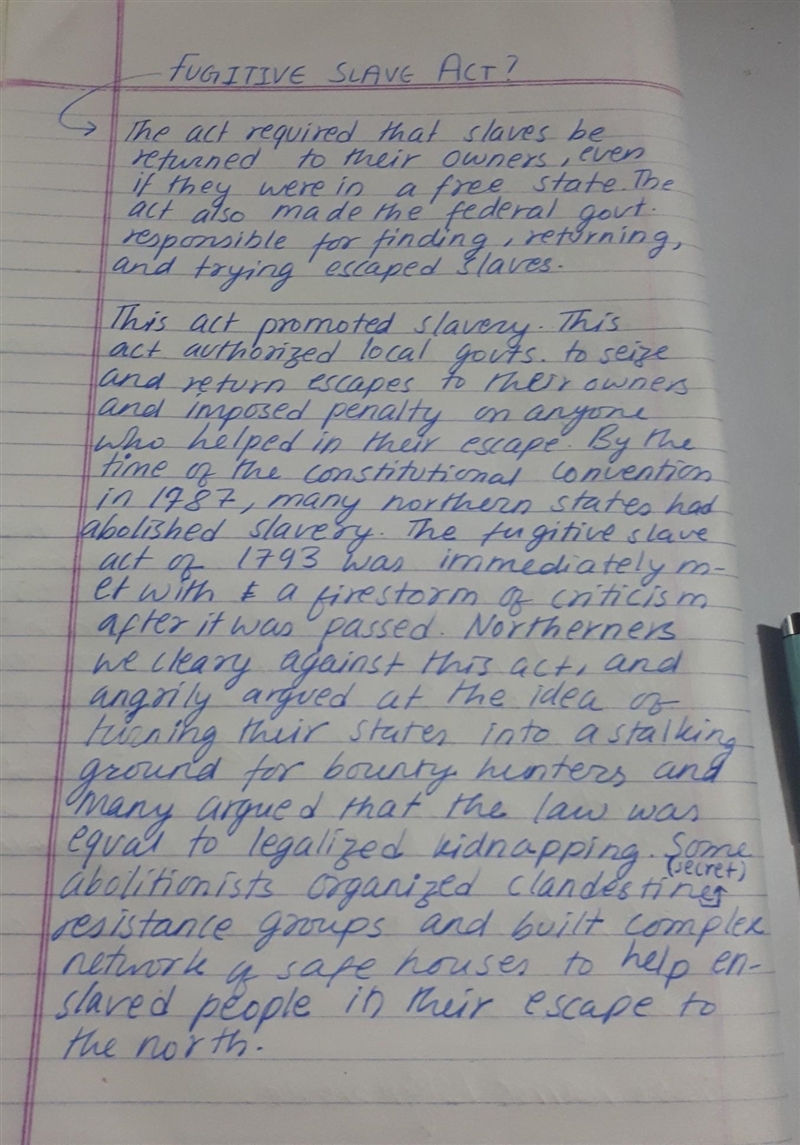 FUGITIVE SLAVE ACT?
The act required that slaves be
returned to their owners, even
if they were in a free state. The
act also made the federal govt.
responsible for finding, returning,
and trying escaped slaves.
This act promoted slavery. This
act authorized local govts. to seize
and return escapes to their owners
and imposed penalty on anyone
who helped in their escape. By the
time of the constitutional convention
in 1787, many northern states had
abolished slavery. The fugitive slave
act of 1793 was immediately m-
et with a firestorm of criticism
after it was passed. Northerners
we cleary against this act, and
angrily argued at the idea of
turning their states into a stalking
ground for bounty hunters and
many argued that the law was
equal to legalized kidnapping. Some
(secret)
abolitionists organized clandestine
resistance groups and built complex
network of safe houses to help en-
slaved people in their escape to
the north.